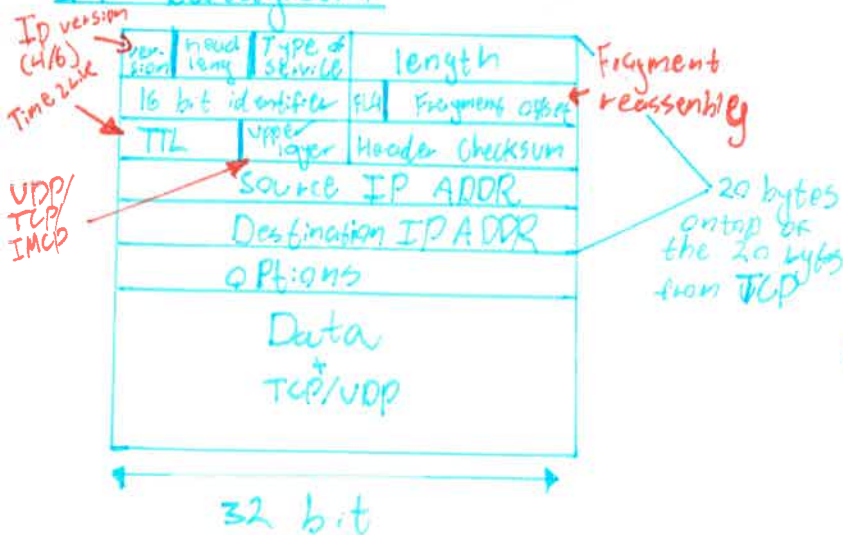 Ip version
(4/6)
Time 2 live
UDP/
TCP/
IMCP
ver-
sion
head
leng
Type of
service
length
16 bit identifier
FLG
Fragment offset
TTL
upper
layer
Header Checksum
Source IP ADDR
Destination IP ADDR
Options
Data
+
TCP/UDP
32 bit
Fragment
reassenbley
20 bytes
on top of
the 20 bytes
from TCP